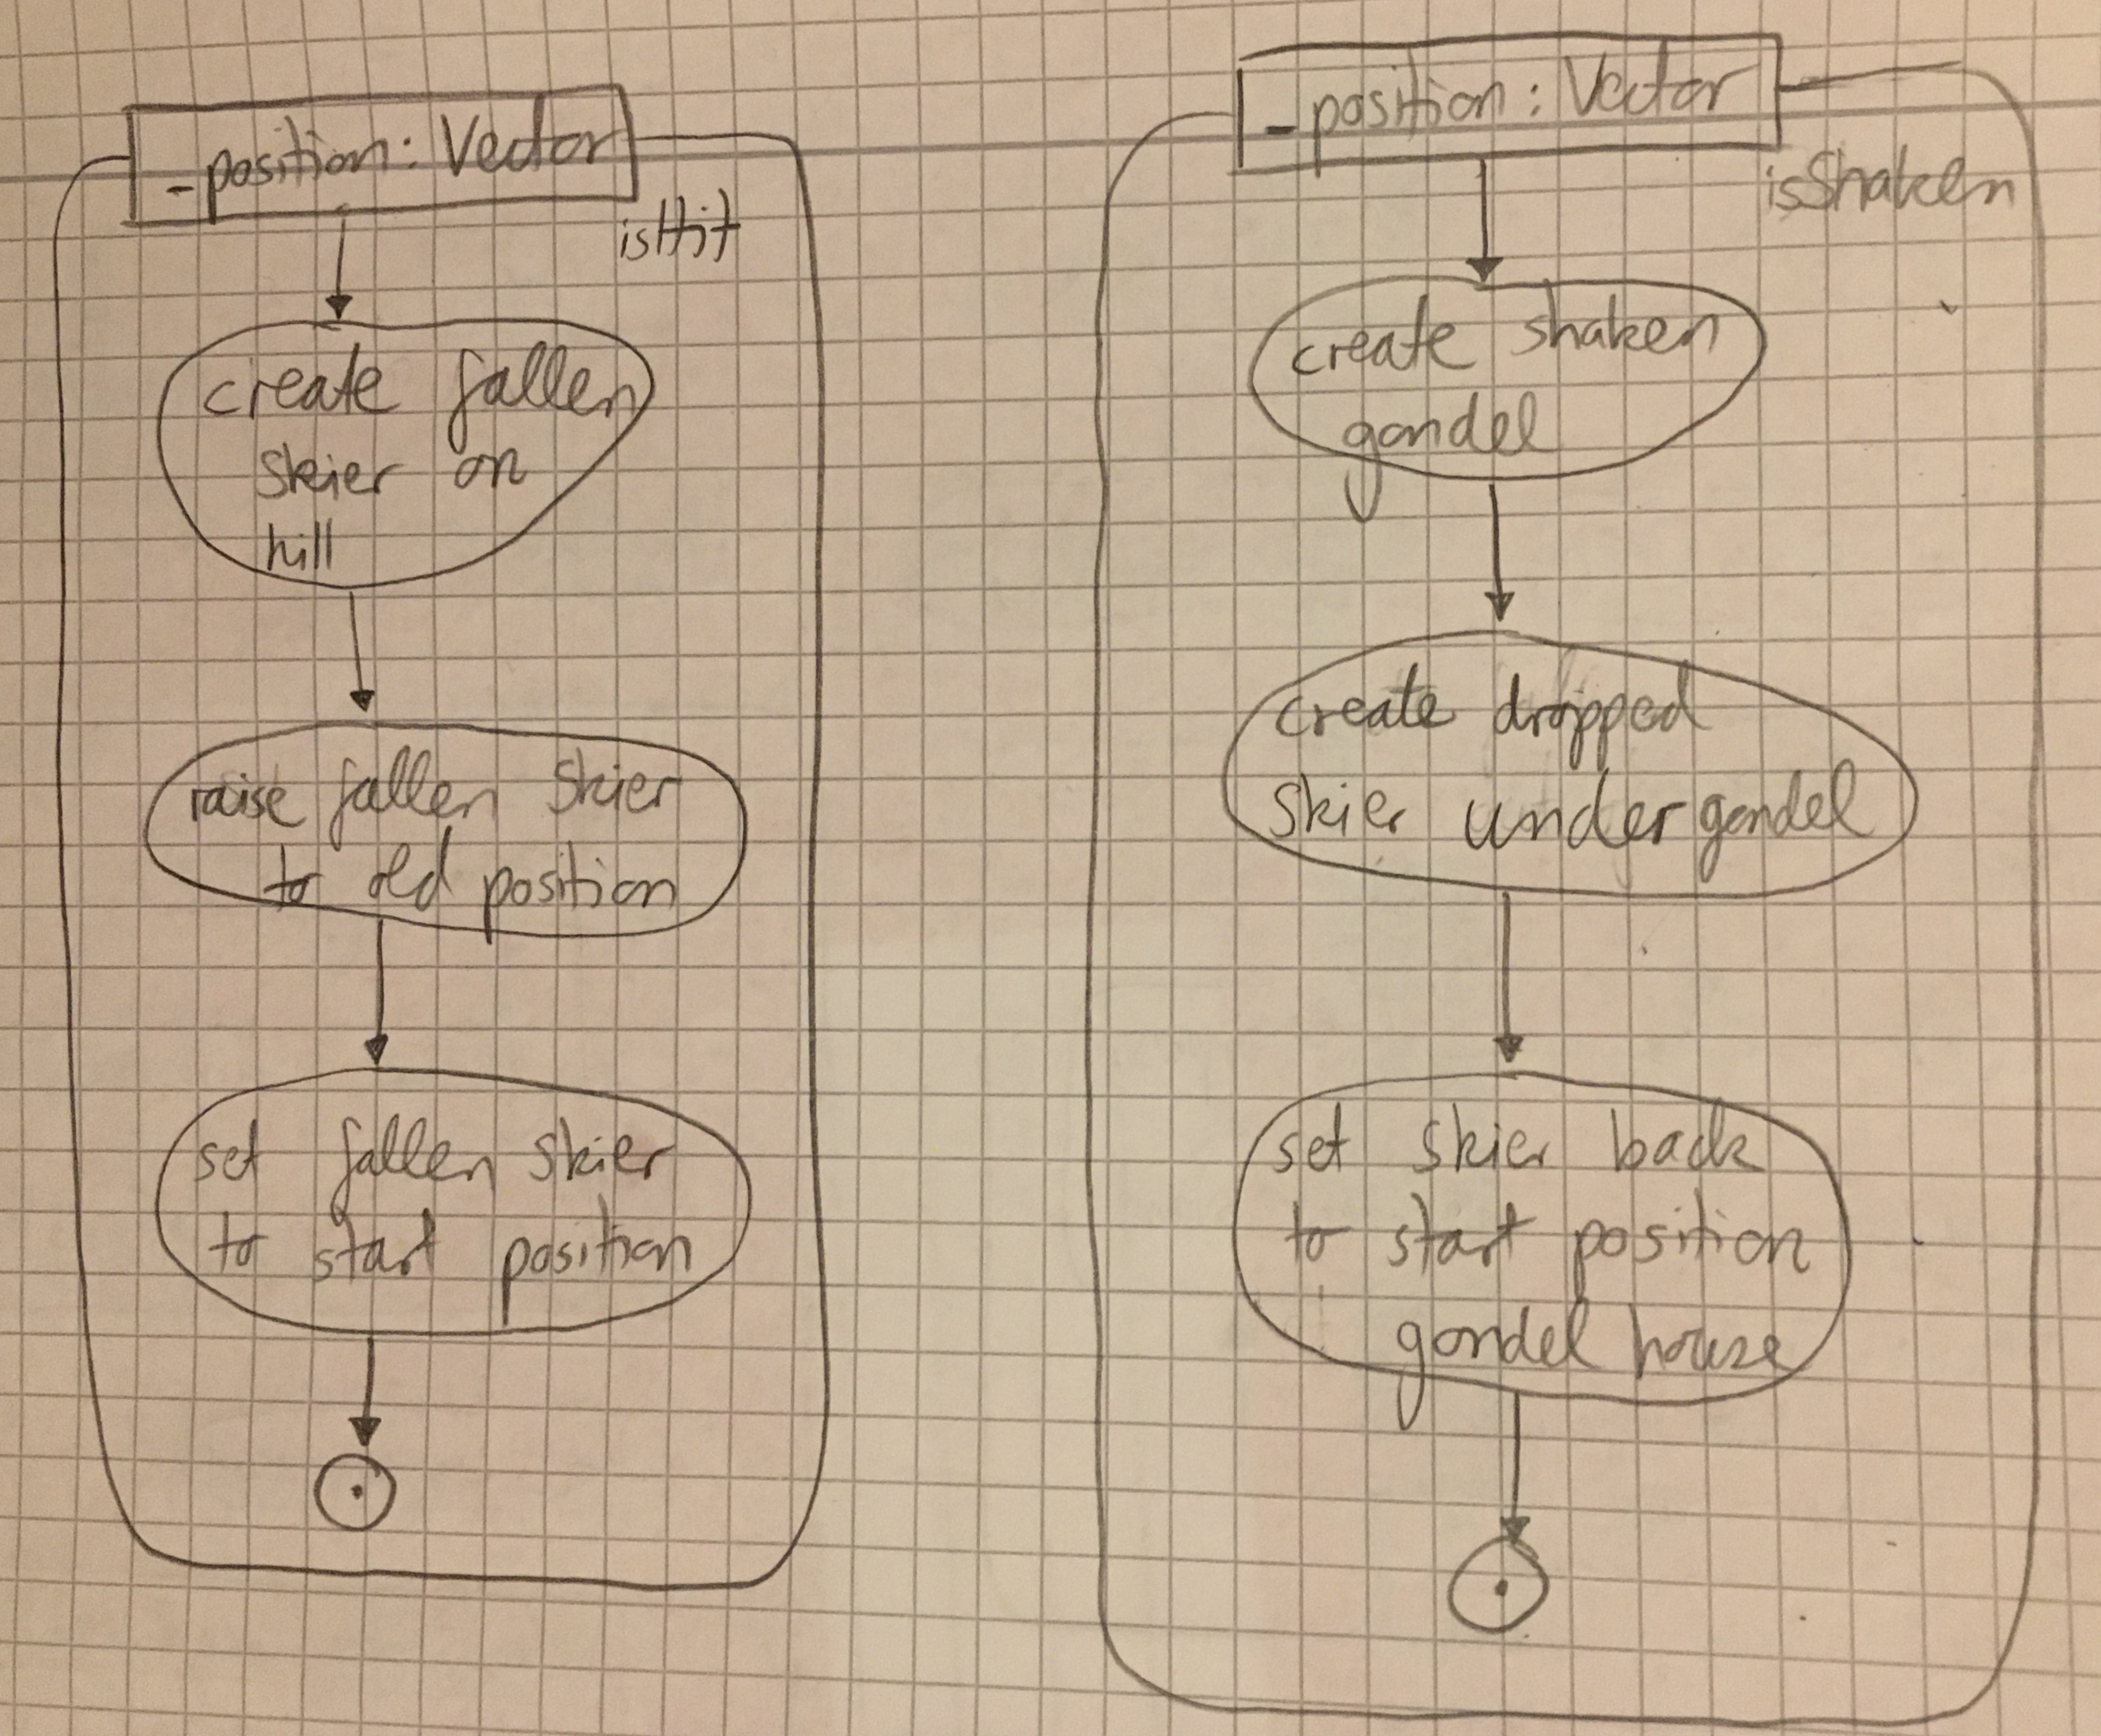 - position: Vector
isHit
create fallen
skier on
hill
raise fallen skier
to old position
set fallen skier
to start position
- position: Vector
isShaken
create shaken
gondel
create dropped
skier under gondel
set skier back
to start position
gondel house